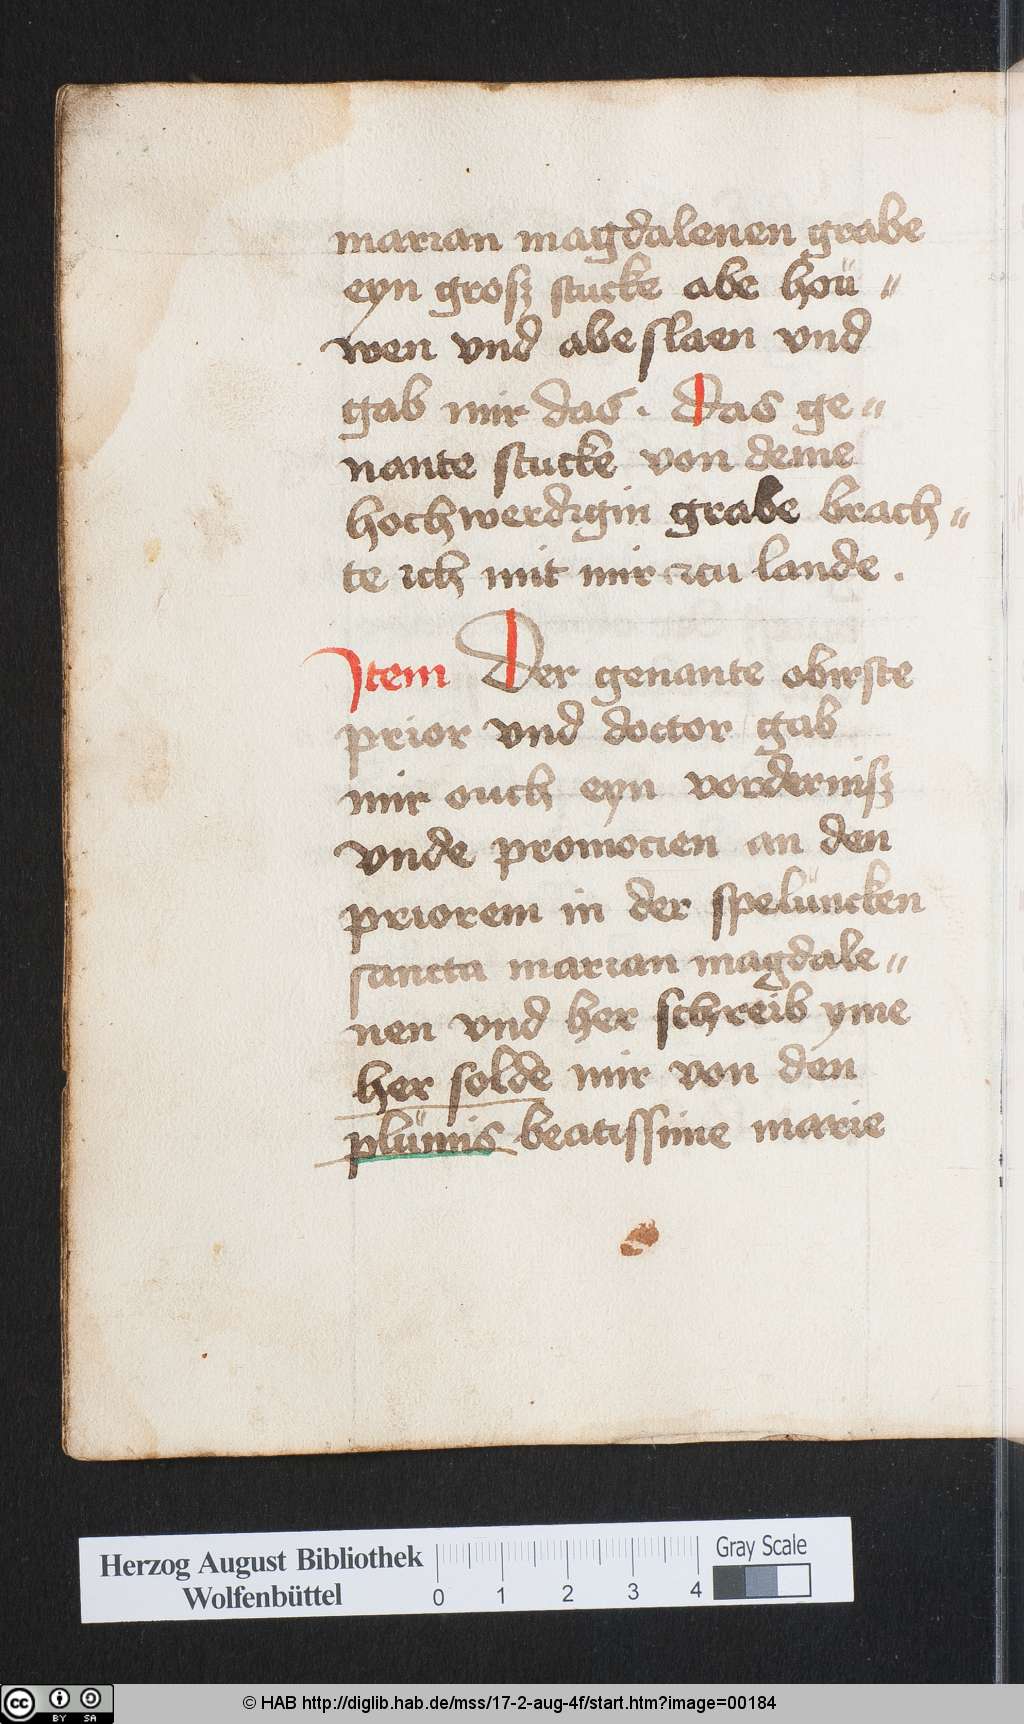 marian magdalenen grabe
eyn grosz stucke abe hoü "
wen vnd abe slaen vnd
gab mir das . Das ge "
nante stucke von deme
hochwerdigin grabe brach "
te ich mit mir czu lande .
Item Der genante obirste
prior vnd doctor gab
mir ouch eyn vordernisz
vnde promocien an den
priorem in der spelüncken
sancta marian magdale "
nen vnd her schreib yme
her solde mir von den
plümis beatissime marie
Herzog August Bibliothek
Wolfenbüttel
0 1 2 3 4
Gray Scale
cc BY SA
© HAB http://diglib.hab.de/mss/17-2-aug-4f/start.htm?image=00184